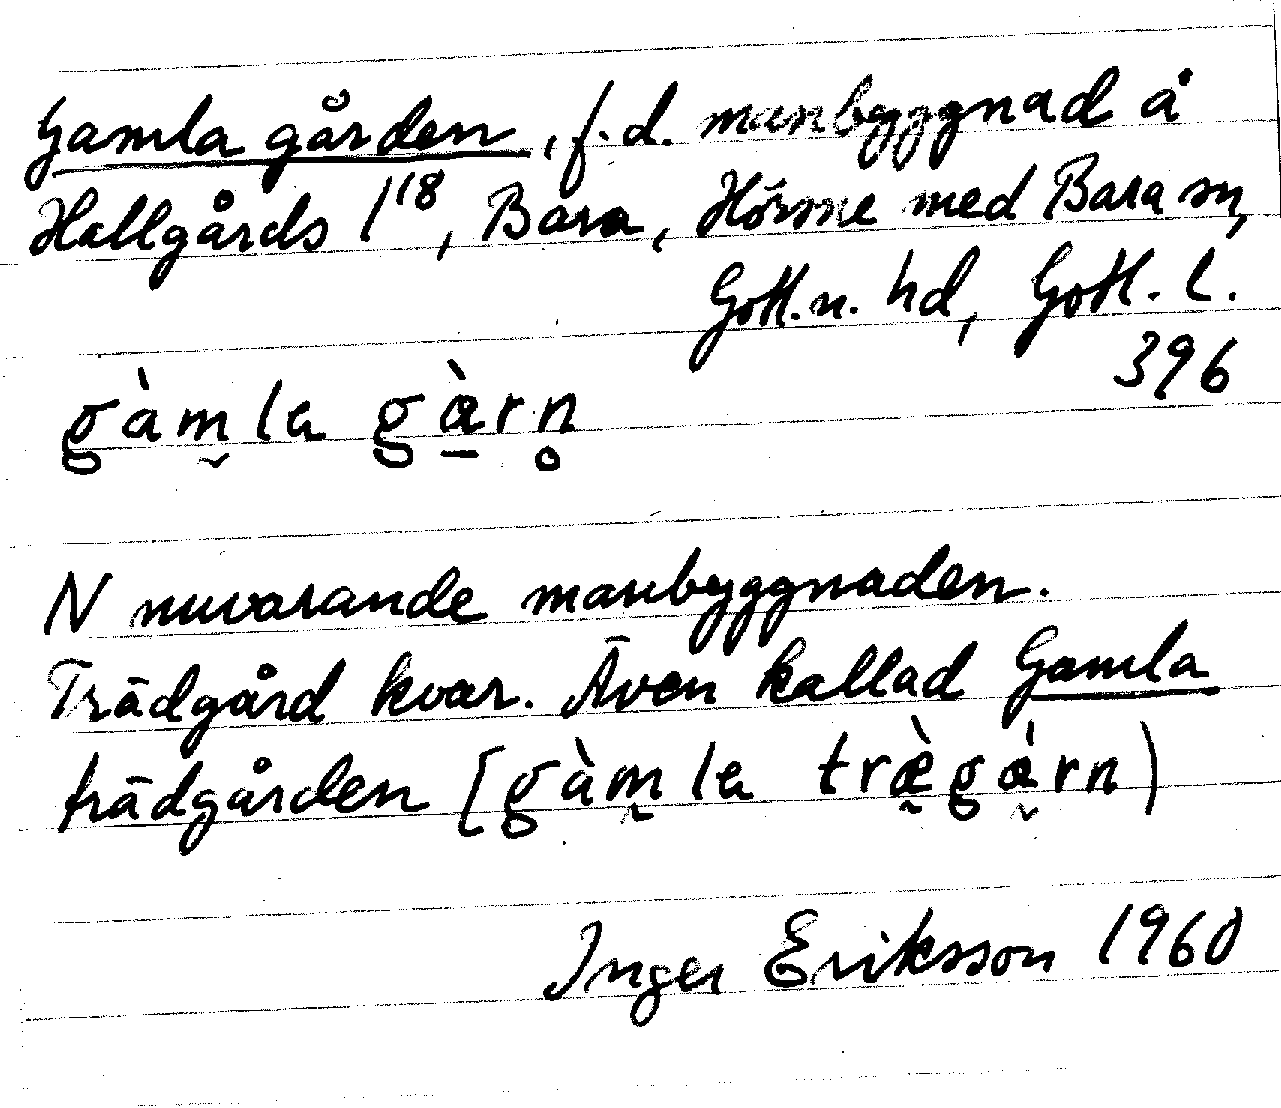 Gamla gården, f.d. manbyggnad å
Hallgårds 1¹⁸, Bara, Hörsne med Bara sn,
Gotl.n. hd, Gotl. l.
396
gàm̬la gà̱rn̥
N nuvarande manbyggnaden.
Trädgård kvar. Även kallad Gamla
trädgården [gàm̰la træ̰̀gá̰rn)
Inger Eriksson 1960